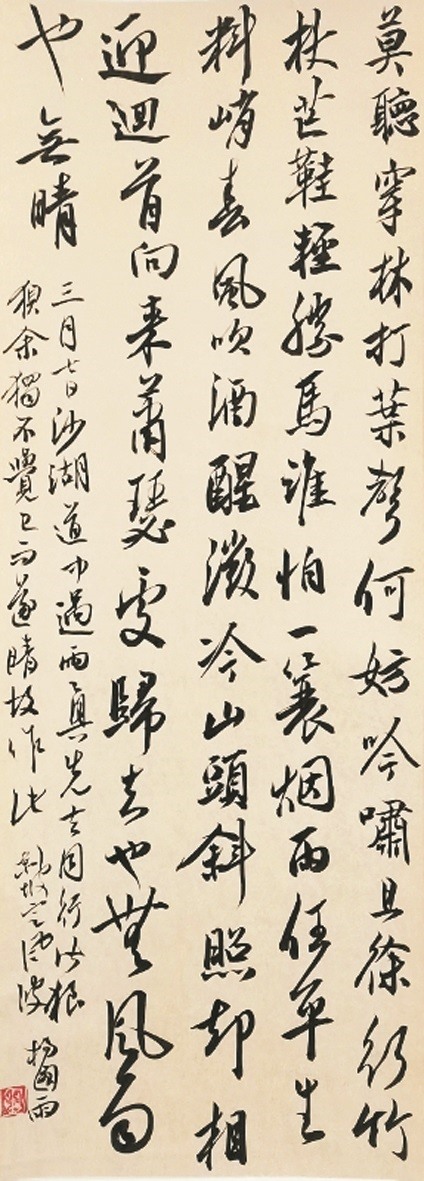 莫聽穿林打葉聲何妨吟嘯且徐行竹
杖芒鞋輕勝馬誰怕一蓑烟雨任平生
料峭春風吹酒醒微冷山頭斜照却相
迎迴首向來蕭瑟處歸去也無風雨
也無晴
三月七日沙湖道中遇雨〻具先去同行皆狼
狽余獨不覺已而遂晴故作此 定風波